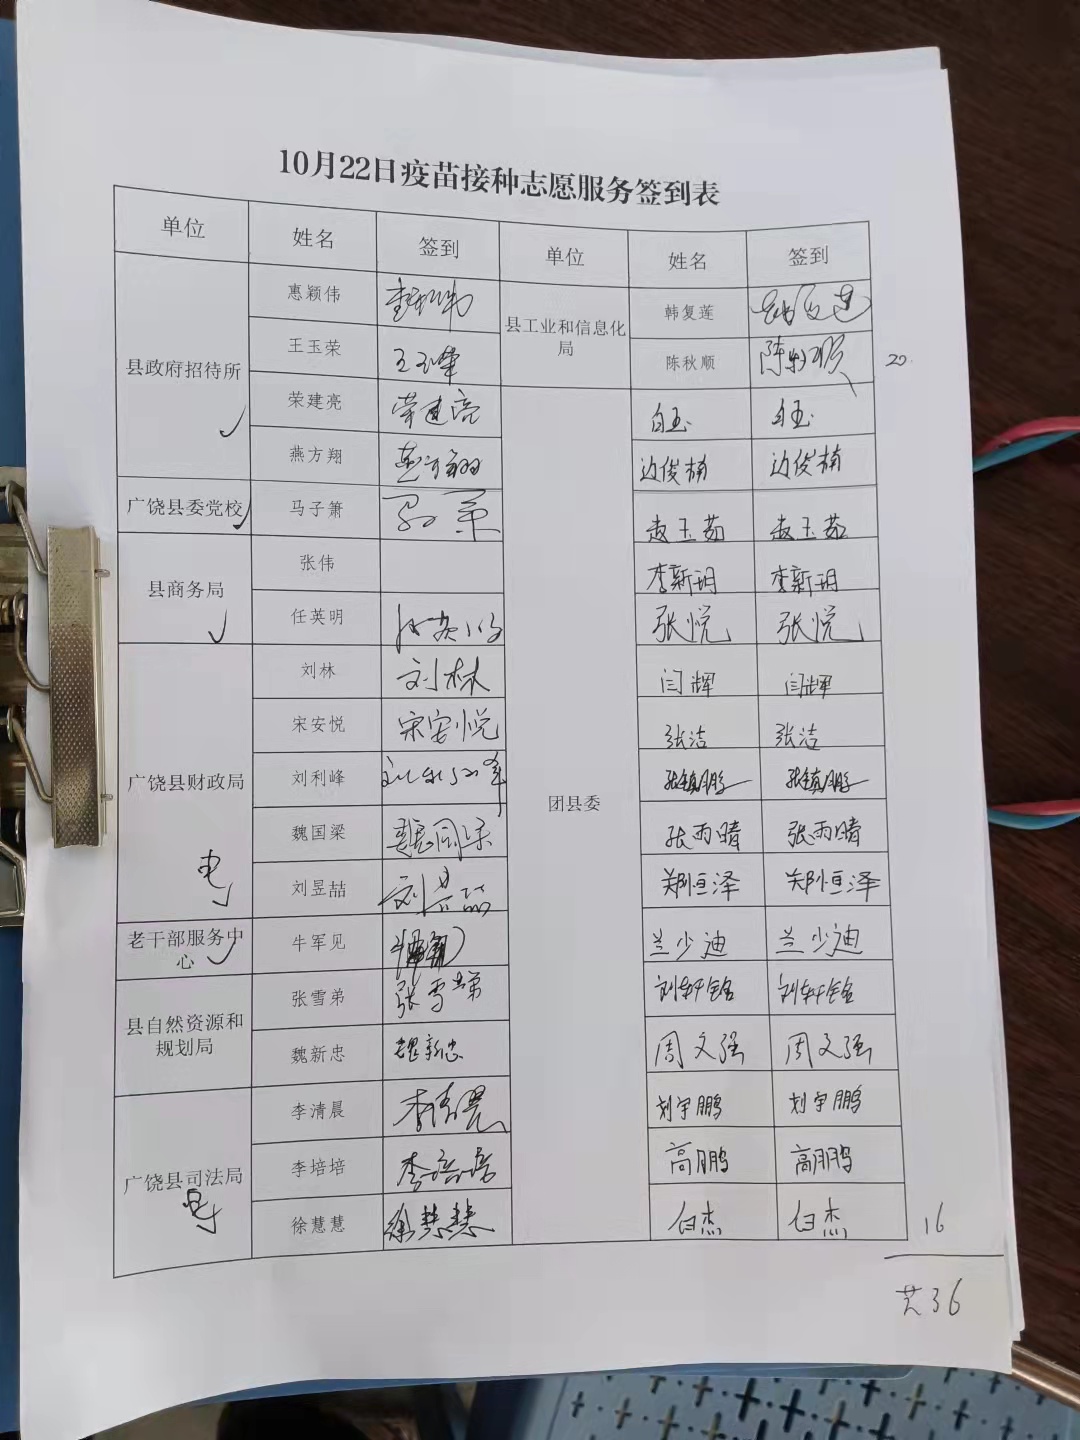 10月22日疫苗接种志愿服务签到表
单位 姓名 签到 单位 姓名 签到
县政府招待所
惠颖伟
王玉荣 王玉荣
荣建亮 荣建亮
燕方翔 燕方翔
广饶县委党校 马子箫
县商务局
张伟
任英明 任英明
广饶县财政局
刘林 刘林
宋安悦 宋安悦
刘利峰 刘利峰
魏国梁 魏国梁
刘昱喆 刘昱喆
电
老干部服务中
心
牛军见
县自然资源和
规划局
张雪弟 张雪弟
魏新忠 魏新忠
广饶县司法局
李清晨 李清晨
李培培 李培培
徐慧慧 徐慧慧
县工业和信息化
局
韩复莲 韩复莲
陈秋顺 陈秋顺
20
团县委
白玉 白玉
边俊楠 边俊楠
赵玉茹 赵玉茹
李新玥 李新玥
张悦 张悦
闫辉 闫辉
张洁 张洁
张镇鹏 张镇鹏
张雨晴 张雨晴
郑恒泽 郑恒泽
兰少迪 兰少迪
刘轩铭 刘轩铭
周文强 周文强
刘宇鹏 刘宇鹏
高鹏 高鹏
白杰 白杰
16
共36